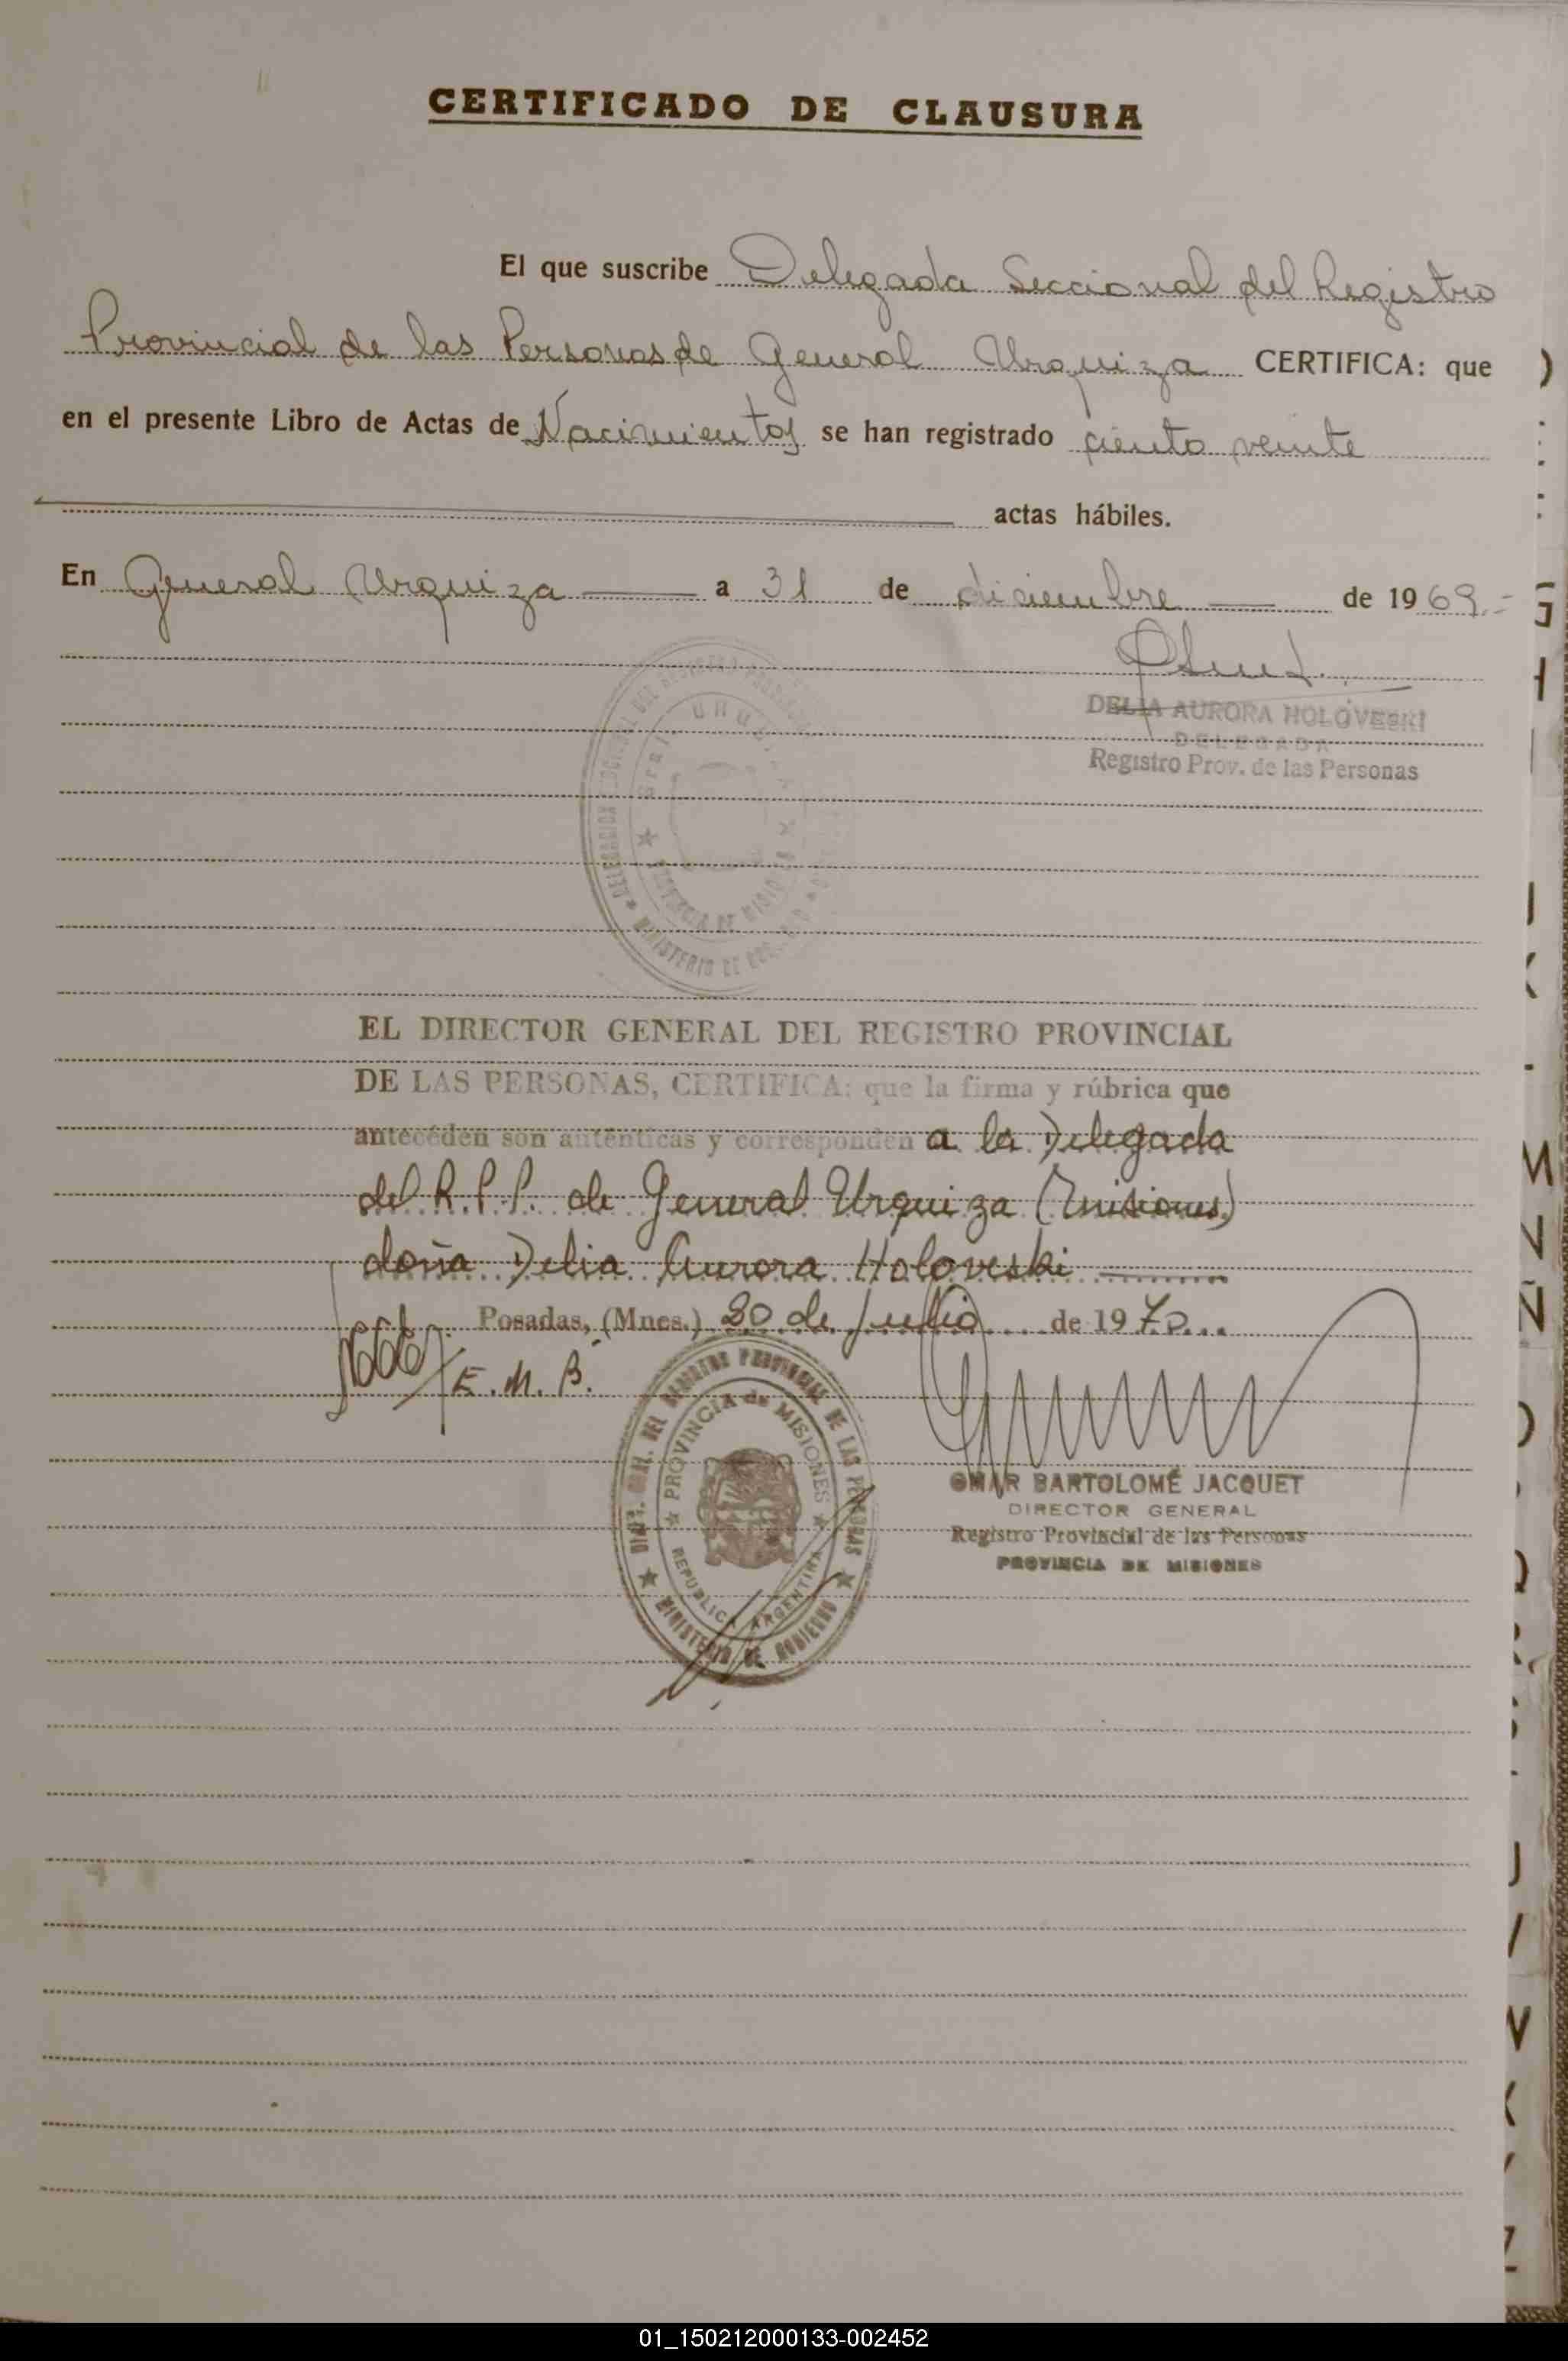 CERTIFICADO DE CLAUSURA
El que suscribe Delegada Seccional del Registro
Provincial de las Personas de General Urquiza CERTIFICA: que
en el presente Libro de Actas de Nacimientos se han registrado ciento veinte
actas hábiles.
En General Urquiza a 31 de diciembre de 1969.-
DELIA AURORA HOLOVESKI
DELEGADA
Registro Prov. de las Personas
EL DIRECTOR GENERAL DEL REGISTRO PROVINCIAL
DE LAS PERSONAS, CERTIFICA: que la firma y rúbrica que
anteceden son auténticas y corresponden a la Delegada
del R.P.P. de General Urquiza (Misiones)
doña Delia Aurora Holoveski
Posadas, (Mnes.) 20 de Julio de 1970
E.M.B.
DIRE. GRAL. DEL REGISTRO PROVINCIAL DE LAS PERSONAS
PROVINCIA de MISIONES
REPUBLICA ARGENTINA
MINISTERIO DE GOBIERNO
OMAR BARTOLOMÉ JACQUET
DIRECTOR GENERAL
Registro Provincial de las Personas
PROVINCIA DE MISIONES
01_150212000133-002452